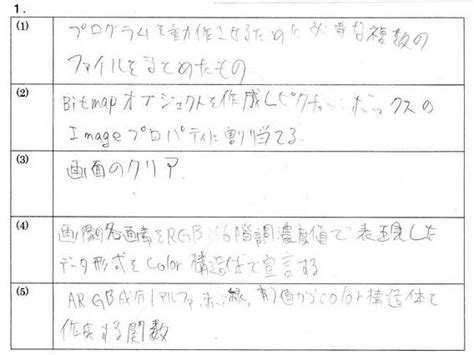 1.
(1) プログラムを動作させるために必要な複数の
ファイルをまとめたもの
(2) Bitmapオブジェクトを作成しピクチャーボックスの
Imageプロパティに割り当てる.
(3) 画面のクリア.
(4) 画像の各画素をRGB 階調濃度値で表現した
データ形式をColor構造体で宣言する
(5) ARGB成分(アルファ,赤,緑,青)値からcolor構造体を
作成する関数